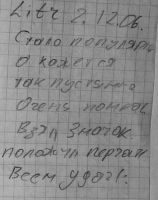 Litr 2.12.06.
Стало популярно
а кажется
так пустынно
Очень помног
Взял значок
положил перчатк
Всем удачи!